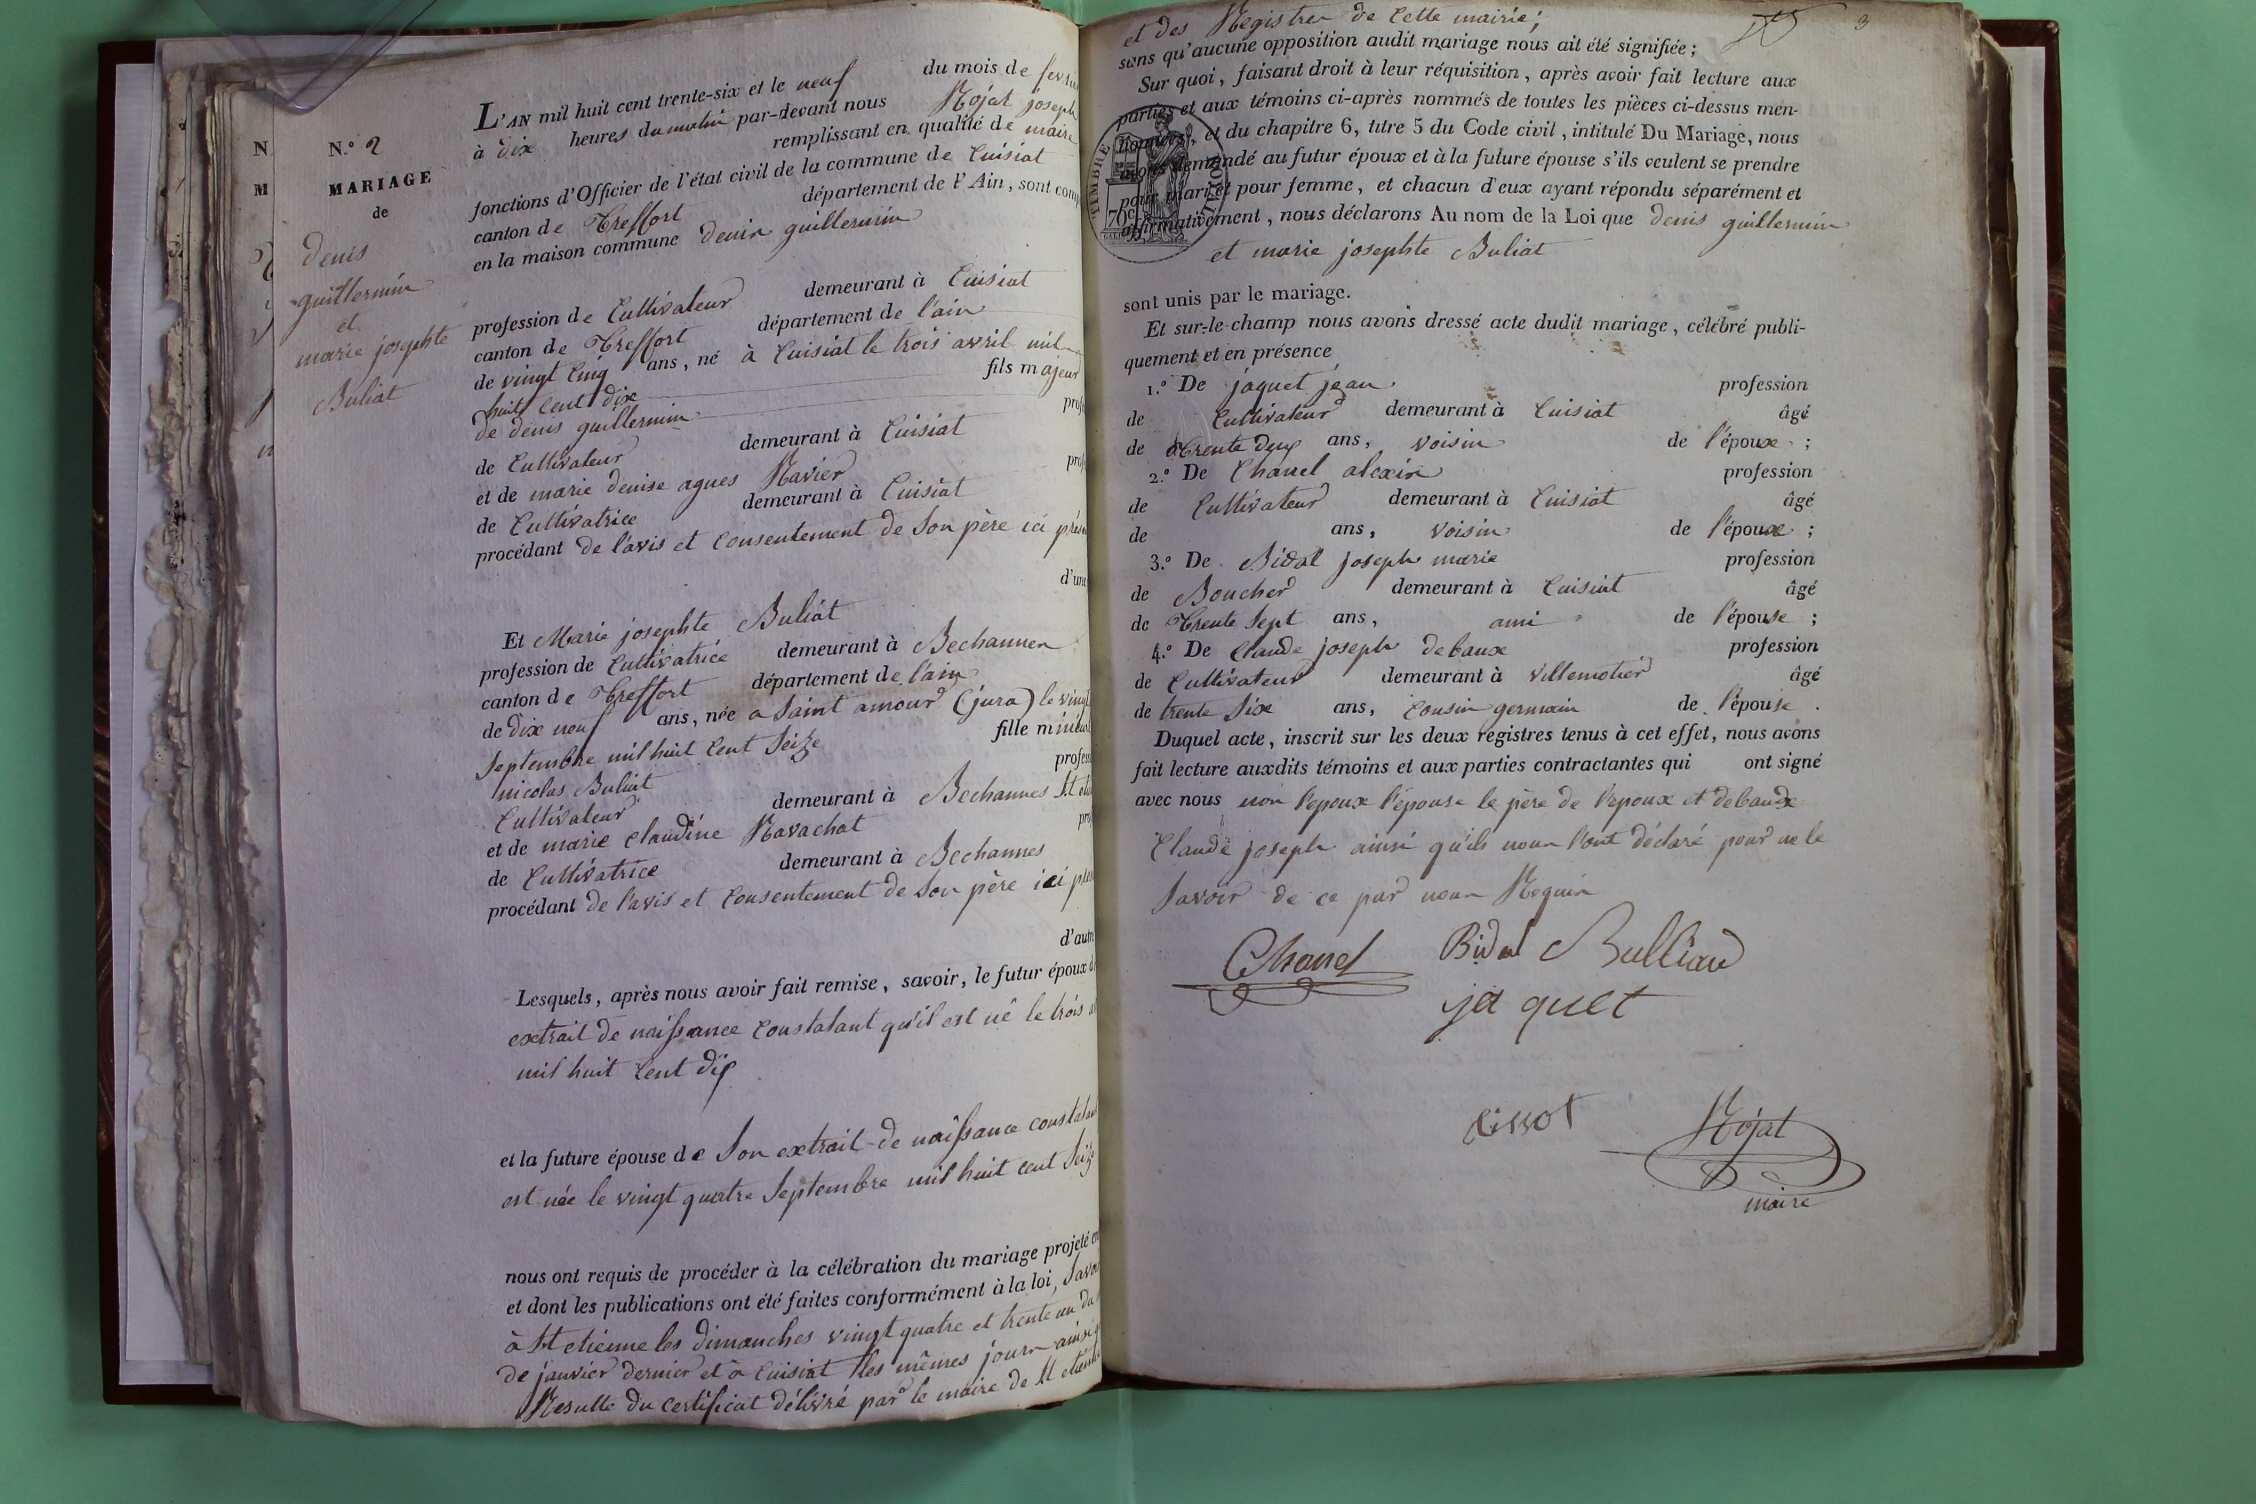 N.° 2
MARIAGE
de
denis
guillermin
et
marie josephte
Buliat
N
M
L'AN mil huit cent trente-six et le neuf du mois de
à dix heures du matin par-devant nous Nojat joseph
remplissant en qualité de maire
fonctions d'Officier de l'état civil de la commune de Cuisiat
canton de Treffort département de l'Ain, sont
en la maison commune denis guillermin
profession de Cultivateur demeurant à Cuisiat
canton de Treffort département de l'ain
de vingt Cinq ans, né à Cuisiat le trois avril mil
huit Cent dix fils majeur
de denis guillermin
de Cultivateur demeurant à Cuisiat
et de marie denise agnes Ravier
de Cultivatrice demeurant à Cuisiat
procédant de l'avis et Consentement de Son père ici
Et Marie josephte Buliat
profession de Cultivatrice demeurant à Bechannes
canton de Treffort département de l'ain
de dix neuf ans, née a Saint amour (jura) le vingt
Septembre mil huit Cent Seize fille
nicolas Buliat
Cultivateur demeurant à Bechannes St
et de marie Claudine Navachat
de Cultivatrice demeurant à Bechannes
procédant de l'avis et Consentement de Son père ici
Lesquels, après nous avoir fait remise, savoir, le futur époux
extrait de naissance Constatant qu'il est né le trois
mil huit Cent dix
et la future épouse de Son extrait de naissance
est née le vingt quatre Septembre mil huit cent Seize
nous ont requis de procéder à la célébration du mariage projeté
et dont les publications ont été faites conformément à la loi, Savoir
à St etienne les dimanches vingt quatre et trente un du
de janvier dernier et à Cuisiat les mêmes jours
Resulte du certificat délivré par le maire de St
3
et des Registres de Cette mairie;
sans qu'aucune opposition audit mariage nous ait été signifiée;
Sur quoi, faisant droit à leur réquisition, après avoir fait lecture aux
parties et aux témoins ci-après nommés de toutes les pièces ci-dessus men-
tionnées, et du chapitre 6, titre 5 du Code civil, intitulé Du Mariage, nous
avons demandé au futur époux et à la future épouse s'ils veulent se prendre
pour mari et pour femme, et chacun d'eux ayant répondu séparément et
affirmativement, nous déclarons Au nom de la Loi que denis guillermin
et marie josephte Buliat
TIMBRE ROYAL
sont unis par le mariage.
Et sur-le-champ nous avons dressé acte dudit mariage, célébré publi-
quement et en présence
1.° De jaquet jean profession
de Cultivateur demeurant à Cuisiat âgé
de Trente deux ans, voisin de l'époux;
2.° De Chanel alexis profession
de Cultivateur demeurant à Cuisiat âgé
de ans, voisin de l'époux;
3.° De Bidal joseph marie profession
de Boucher demeurant à Cuisiat âgé
de Trente Sept ans, ami de l'épouse;
4.° De Claude joseph debaux profession
de Cultivateur demeurant à Villemotier âgé
de trente Six ans, Cousin germain de l'épouse.
Duquel acte, inscrit sur les deux registres tenus à cet effet, nous avons
fait lecture auxdits témoins et aux parties contractantes qui ont signé
avec nous non l'epoux l'épouse le père de l'epoux et debaux
Claude joseph ainsi qu'ils nous l'ont déclaré pour ne le
Savoir de ce par nous Requis
Chanel Bidal Bulliad
jaquet
Cissot
Nojat
maire